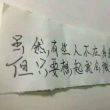 虽然有些人不在身边
但只要想起我会微